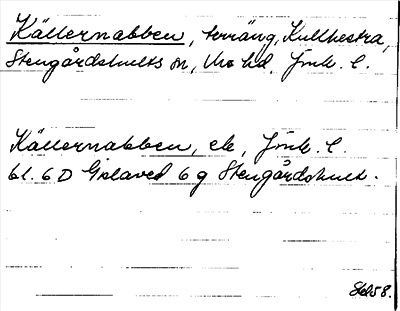 Källernabben, terräng, Kullhestra,
Stengårdshults sn, Mo hd. Jönk. l.
Källernabben, ek, Jönk. l.
bl. 6D Gislaved 6g Stengårdshult.
58.